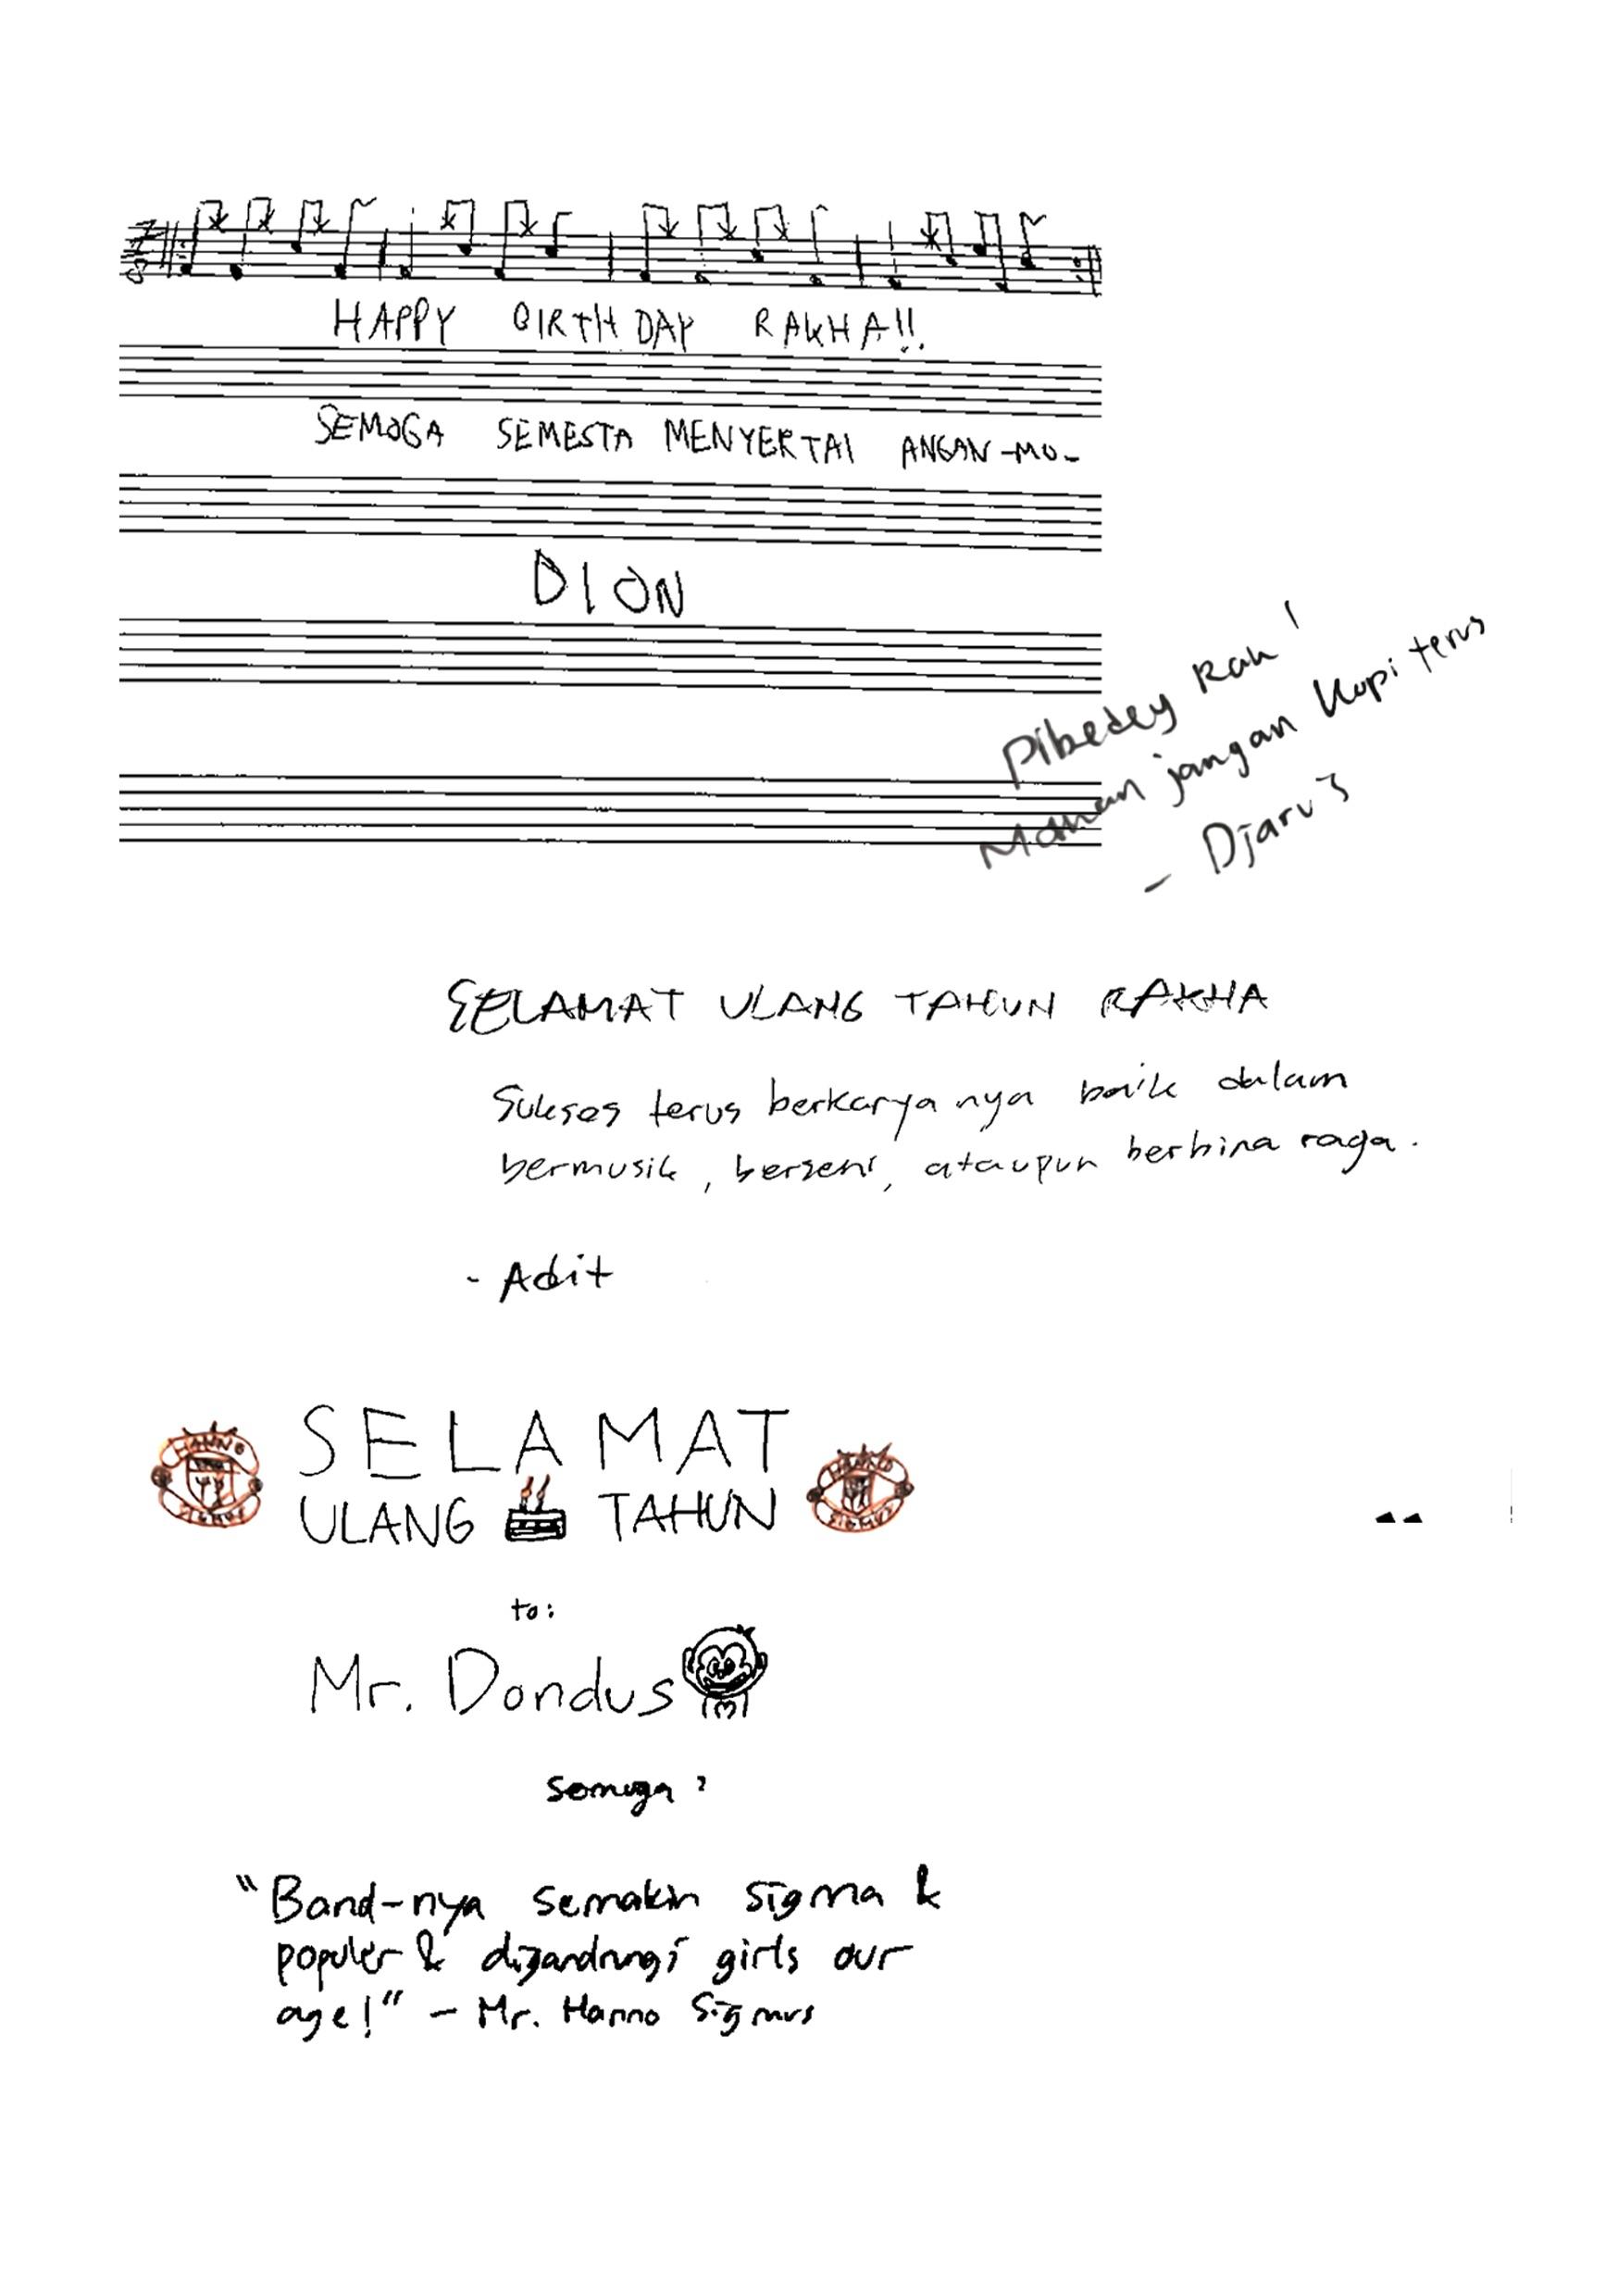 HAPPY BIRTHDAY RAKHA!!
SEMOGA SEMESTA MENYERTAI ANGAN-MU-
DION
Pibedey Rak!
Makan jangan kopi terus
- Djarvis
SELAMAT ULANG TAHUN RAKHA
Sukses terus berkarya nya baik dalam
bermusik, berseni, ataupun berbina raga.
- Adit
HANNO
SIGMUS
SELAMAT
ULANG TAHUN
HANNO
SIGMUS
to:
Mr. Dondus
semoga :
"Band-nya semakin sigma &
populer & digandrungi girls our
age!" - Mr. Hanno Sigmus